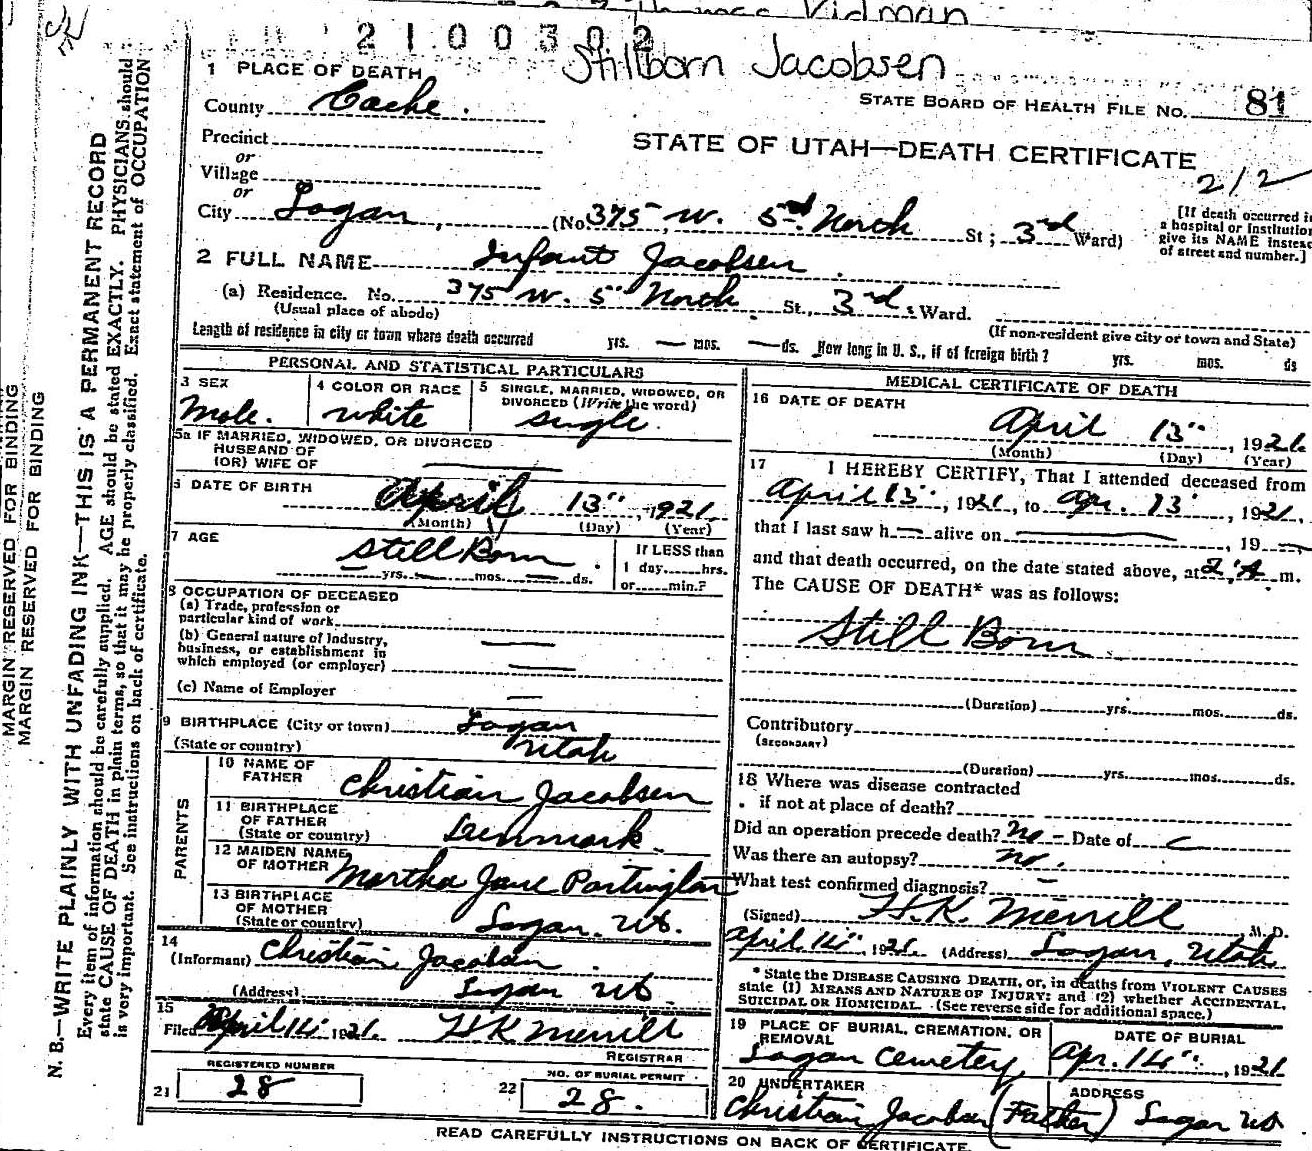 Thomas Vidman
2100302
Stillborn Jacobsen
1 PLACE OF DEATH
County Cache.
STATE BOARD OF HEALTH FILE No. 81
Precinct
or
STATE OF UTAH—DEATH CERTIFICATE
212
Village
or
City Logan, (No. 375 W. 5th North St; 3rd Ward)
[If death occurred in
a hospital or institution
give its NAME instead
of street and number.]
2 FULL NAME Infant Jacobsen.
(a) Residence. No. 375 W. 5" North St., 3rd. Ward.
(Usual place of abode)
(If non-resident give city or town and State)
Length of residence in city or town where death occurred yrs. — mos. — ds. How long in U. S., if of foreign birth? yrs. mos. ds
PERSONAL AND STATISTICAL PARTICULARS
3 SEX
Male.
4 COLOR OR RACE
White
5 SINGLE, MARRIED, WIDOWED, OR
DIVORCED (Write the word)
Single.
5a IF MARRIED, WIDOWED, OR DIVORCED
HUSBAND OF
(OR) WIFE OF
6 DATE OF BIRTH April 13", 1921.
(Month) (Day) (Year)
7 AGE
Still Born.
yrs. — mos. — ds.
If LESS than
1 day......hrs.
or......min.?
8 OCCUPATION OF DECEASED
(a) Trade, profession or
particular kind of work
(b) General nature of Industry,
business, or establishment in
which employed (or employer)
(c) Name of Employer —
9 BIRTHPLACE (City or town) Logan
(State or country) Utah
PARENTS
10 NAME OF
FATHER Christian Jacobsen
11 BIRTHPLACE
OF FATHER
(State or country) Denmark.
12 MAIDEN NAME
OF MOTHER Martha Jane Partington
13 BIRTHPLACE
OF MOTHER
(State or country) Logan. Ut.
14
(Informant) Christian Jacobsen.
(Address) Logan Ut.
15
Filed April 14" 1921. H K Merrill
REGISTRAR
REGISTERED NUMBER
21 28
NO. OF BURIAL PERMIT
22 28.
MEDICAL CERTIFICATE OF DEATH
16 DATE OF DEATH
April 13", 1921.
(Month) (Day) (Year)
17 I HEREBY CERTIFY, That I attended deceased from
April 13", 1921, to Apr. 13, 1921,
that I last saw h— alive on —, 19 —,
and that death occurred, on the date stated above, at 2 A m.
The CAUSE OF DEATH* was as follows:
Still Born
(Duration) yrs. mos. ds.
Contributory
(SECONDARY)
(Duration) yrs. mos. ds.
18 Where was disease contracted
if not at place of death?
Did an operation precede death? No – Date of
Was there an autopsy? No.
What test confirmed diagnosis? –
(Signed) H. K. Merrill, M. D.
April 14", 1921. (Address) Logan, Utah
* State the DISEASE CAUSING DEATH, or, in deaths from VIOLENT CAUSES
state (1) MEANS AND NATURE OF INJURY: and (2) whether ACCIDENTAL,
SUICIDAL OR HOMICIDAL. (See reverse side for additional space.)
19 PLACE OF BURIAL, CREMATION, OR
REMOVAL
Logan Cemetery
DATE OF BURIAL
Apr. 14", 1921
20 UNDERTAKER
Christian Jacobsen (Father)
ADDRESS
Logan Ut
READ CAREFULLY INSTRUCTIONS ON BACK OF CERTIFICATE.
MARGIN RESERVED FOR BINDING
MARGIN RESERVED FOR BINDING
N. B.—WRITE PLAINLY WITH UNFADING INK—THIS IS A PERMANENT RECORD
Every item of information should be carefully supplied. AGE should be stated EXACTLY. PHYSICIANS should
state CAUSE OF DEATH in plain terms, so that it may be properly classified. Exact statement of OCCUPATION
is very important. See instructions on back of certificate.